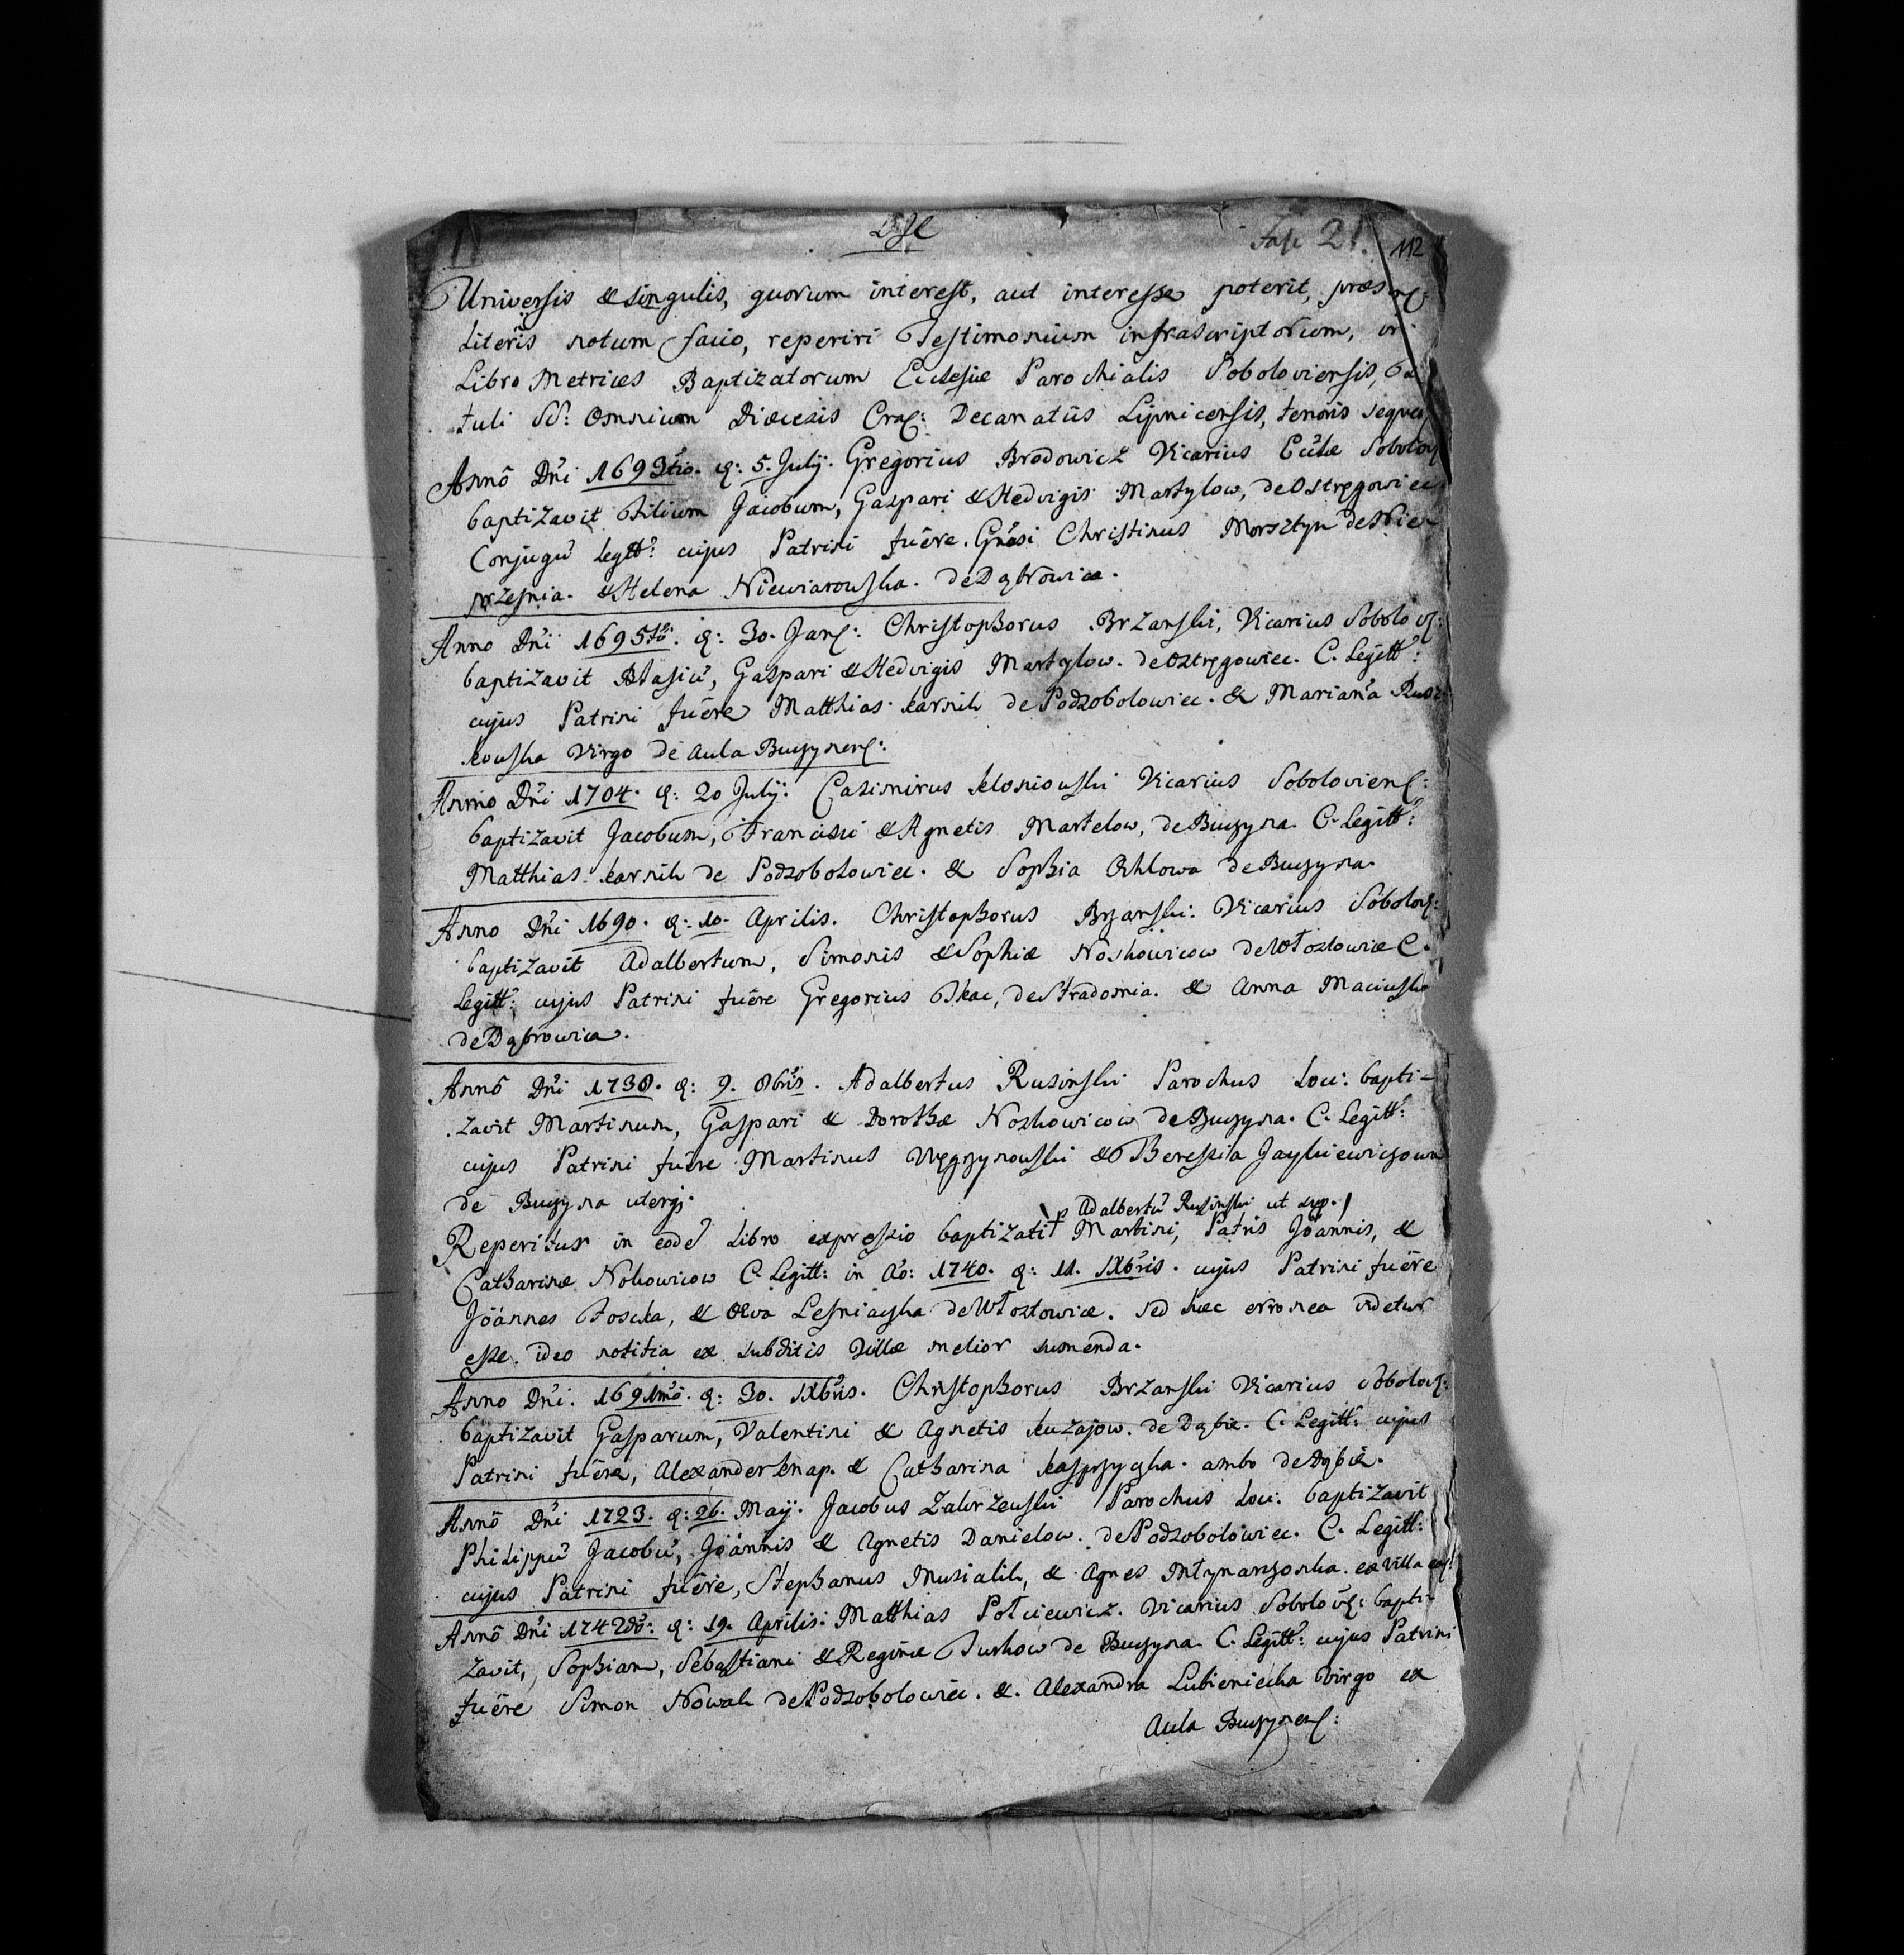 Fasc 21. 112
Universis & singulis, quorum interest, aut interesse poterit, præs
Literis notum facio, reperiri Testimonium infrascriptorum, in
Libro Metrices Baptizatorum Ecclesiæ Parochialis Soboloviensis,
tuli SS: Omnium Diæcesis Crac: Decanatûs Lipnicensis, tenoris seque
Annô Dñi 1693tio. d: 5. Julij. Gregorius Brodowicz Vicarius Eccłæ Sobolov
baptizavit Filium Jacobum, Gaspari & Hedvigis Martylow, de Ostręgowiec
Conjugũ legitt: cujus Patrini fuêre. Gñosi Christinus Morsztyn de Wie-
przesnia. & Helena Niewiarowska. de Dąbrowica.
Anno Dñi 1695to. d: 30. Jan: Christophorus Brzanski, Vicarius Sobolov:
baptizavit Blasiũ, Gaspari & Hedvigis Martylow. de Ostręgowiec. C. Legitt:
cujus Patrini fuêre Matthias Karnik de Podsobolowiec. & Mariaña Rusz-
kowska Virgo de Aula Buczynen:
Anno Dñi 1704. d: 20 Julij. Casimirus Kloniowski Vicarius Sobolovien:
baptizavit Jacobum, Francisci & Agnetis Martelow, de Buczyna. C. Legitt:
Matthias Karnik de Podsobolowiec. & Sophia Ochlowa de Buczyna.
Anno Dñi 1690. d: 10. Aprilis. Christophorus Brzanski. Vicarius Sobolov:
baptizavit Adalbertum, Simonis & Sophiæ Noskowicow de Włostowice C.
Legitt: cujus Patrini fuêre Gregorius Tkac, de Stradomia. & Anna Maciuska
de Dąbrowica.
Annô Dñi 1738. d: 9. 8bris. Adalbertus Rusinski Parochus Loci: bapti-
zavit Martinum, Gaspari & Dorothæ Noskowicow de Buczyna. C. Legitt:
cujus Patrini fuêre Martinus Węgrzynowski & Theressia Jaykiewiczowa
de Buczyna uterq.
p Adalbertũ Rusinski ut sup.
Reperitur in eodẽ Libro expressio baptizati Martini, Patris Joannis, &
Catharinæ Nokowicow C. Legitt: in Aô: 1740. d: 11. IXbris. cujus Patrini fuêre
Joannes Toscka, & Ewa Lesniacka de Włostowice. sed hæc erronea videtur
esse. ideo notitia ex subditis Villæ melior sumenda.
Anno Dñi. 1691mô. d: 30. IXbris. Christophorus Brzanski Vicarius Sobolov:
baptizavit Gasparum, Valentini & Agnetis Kuzajow. de Dąbie. C. Legitt: cujus
Patrini fuêre, Alexander Knap. & Catharina Kasprzycka. ambo de Dąbie.
Annô Dñi 1723. d: 26. Maij. Jacobus Zakrzewski Parochus Loci: baptizavit
Philippũ Jacobũ, Joannis & Agnetis Danielow. de Podsobolowiec. C. Legitt:
cujus Patrini fuêre, Stephanus Musialik, & Agnes Młynarczonka. ex villa ead:
Annô Dñi 1742dô: d: 19. Aprilis. Matthias Połciewicz. Vicarius Sobolov: bapti-
zavit, Sophiam, Sebastiani & Reginæ Turkow de Buczyna. C. Legitt: cujus Patrini
fuêre Simon Nowak de Podsobolowiec. &. Alexandra Lubieniecka Virgo ex
Aula Buczynen: